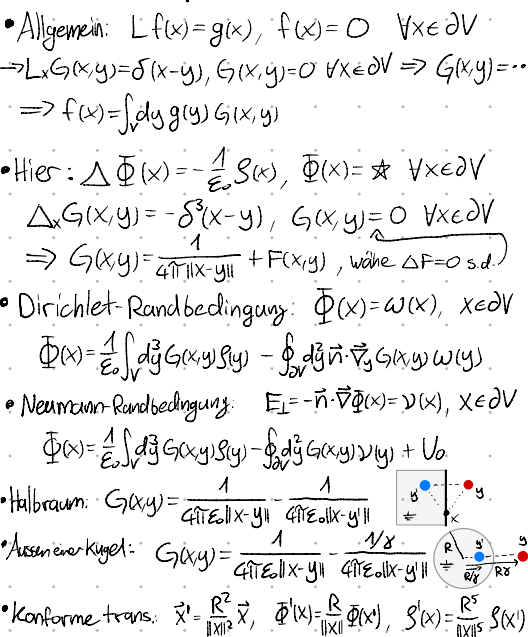 • Allgemein: L f(x) = g(x), f(x) = 0 ∀x∈∂V
→ LₓG(x,y) = δ(x-y), G(x,y) = 0 ∀x∈∂V ⇒ G(x,y) = ...
⇒ f(x) = ∫_V dy g(y) G(x,y)
• Hier: Δ Φ(x) = - 1/ε₀ ρ(x), Φ(x) = ☆ ∀x∈∂V
ΔₓG(x,y) = -δ³(x-y), G(x,y) = 0 ∀x∈∂V
⇒ G(x,y) = 1/(4π||x-y||) + F(x,y), wähle ΔF=0 s.d.
• Dirichlet-Randbedingung: Φ(x) = ω(x), x∈∂V
Φ(x) = 1/ε₀ ∫_V d³y G(x,y) ρ(y) - ∮_∂V d²y n⃗·∇⃗_y G(x,y) ω(y)
• Neumann-Randbedingung: E⊥ = -n⃗·∇⃗Φ(x) = ν(x), x∈∂V
Φ(x) = 1/ε₀ ∫_V d³y G(x,y) ρ(y) - ∮_∂V d²y G(x,y) ν(y) + U₀
• Halbraum: G(x,y) = 1/(4πε₀||x-y||) - 1/(4πε₀||x-y'||)
y' y x
• Aussen einer Kugel: G(x,y) = 1/(4πε₀||x-y||) - (1/γ)/(4πε₀||x-y'||)
R y' y R/γ Rγ
• Konforme trans.: x⃗' = R²/||x||² x⃗, Φ'(x) = R/||x|| Φ(x'), ρ'(x) = R⁵/||x||⁵ ρ(x')